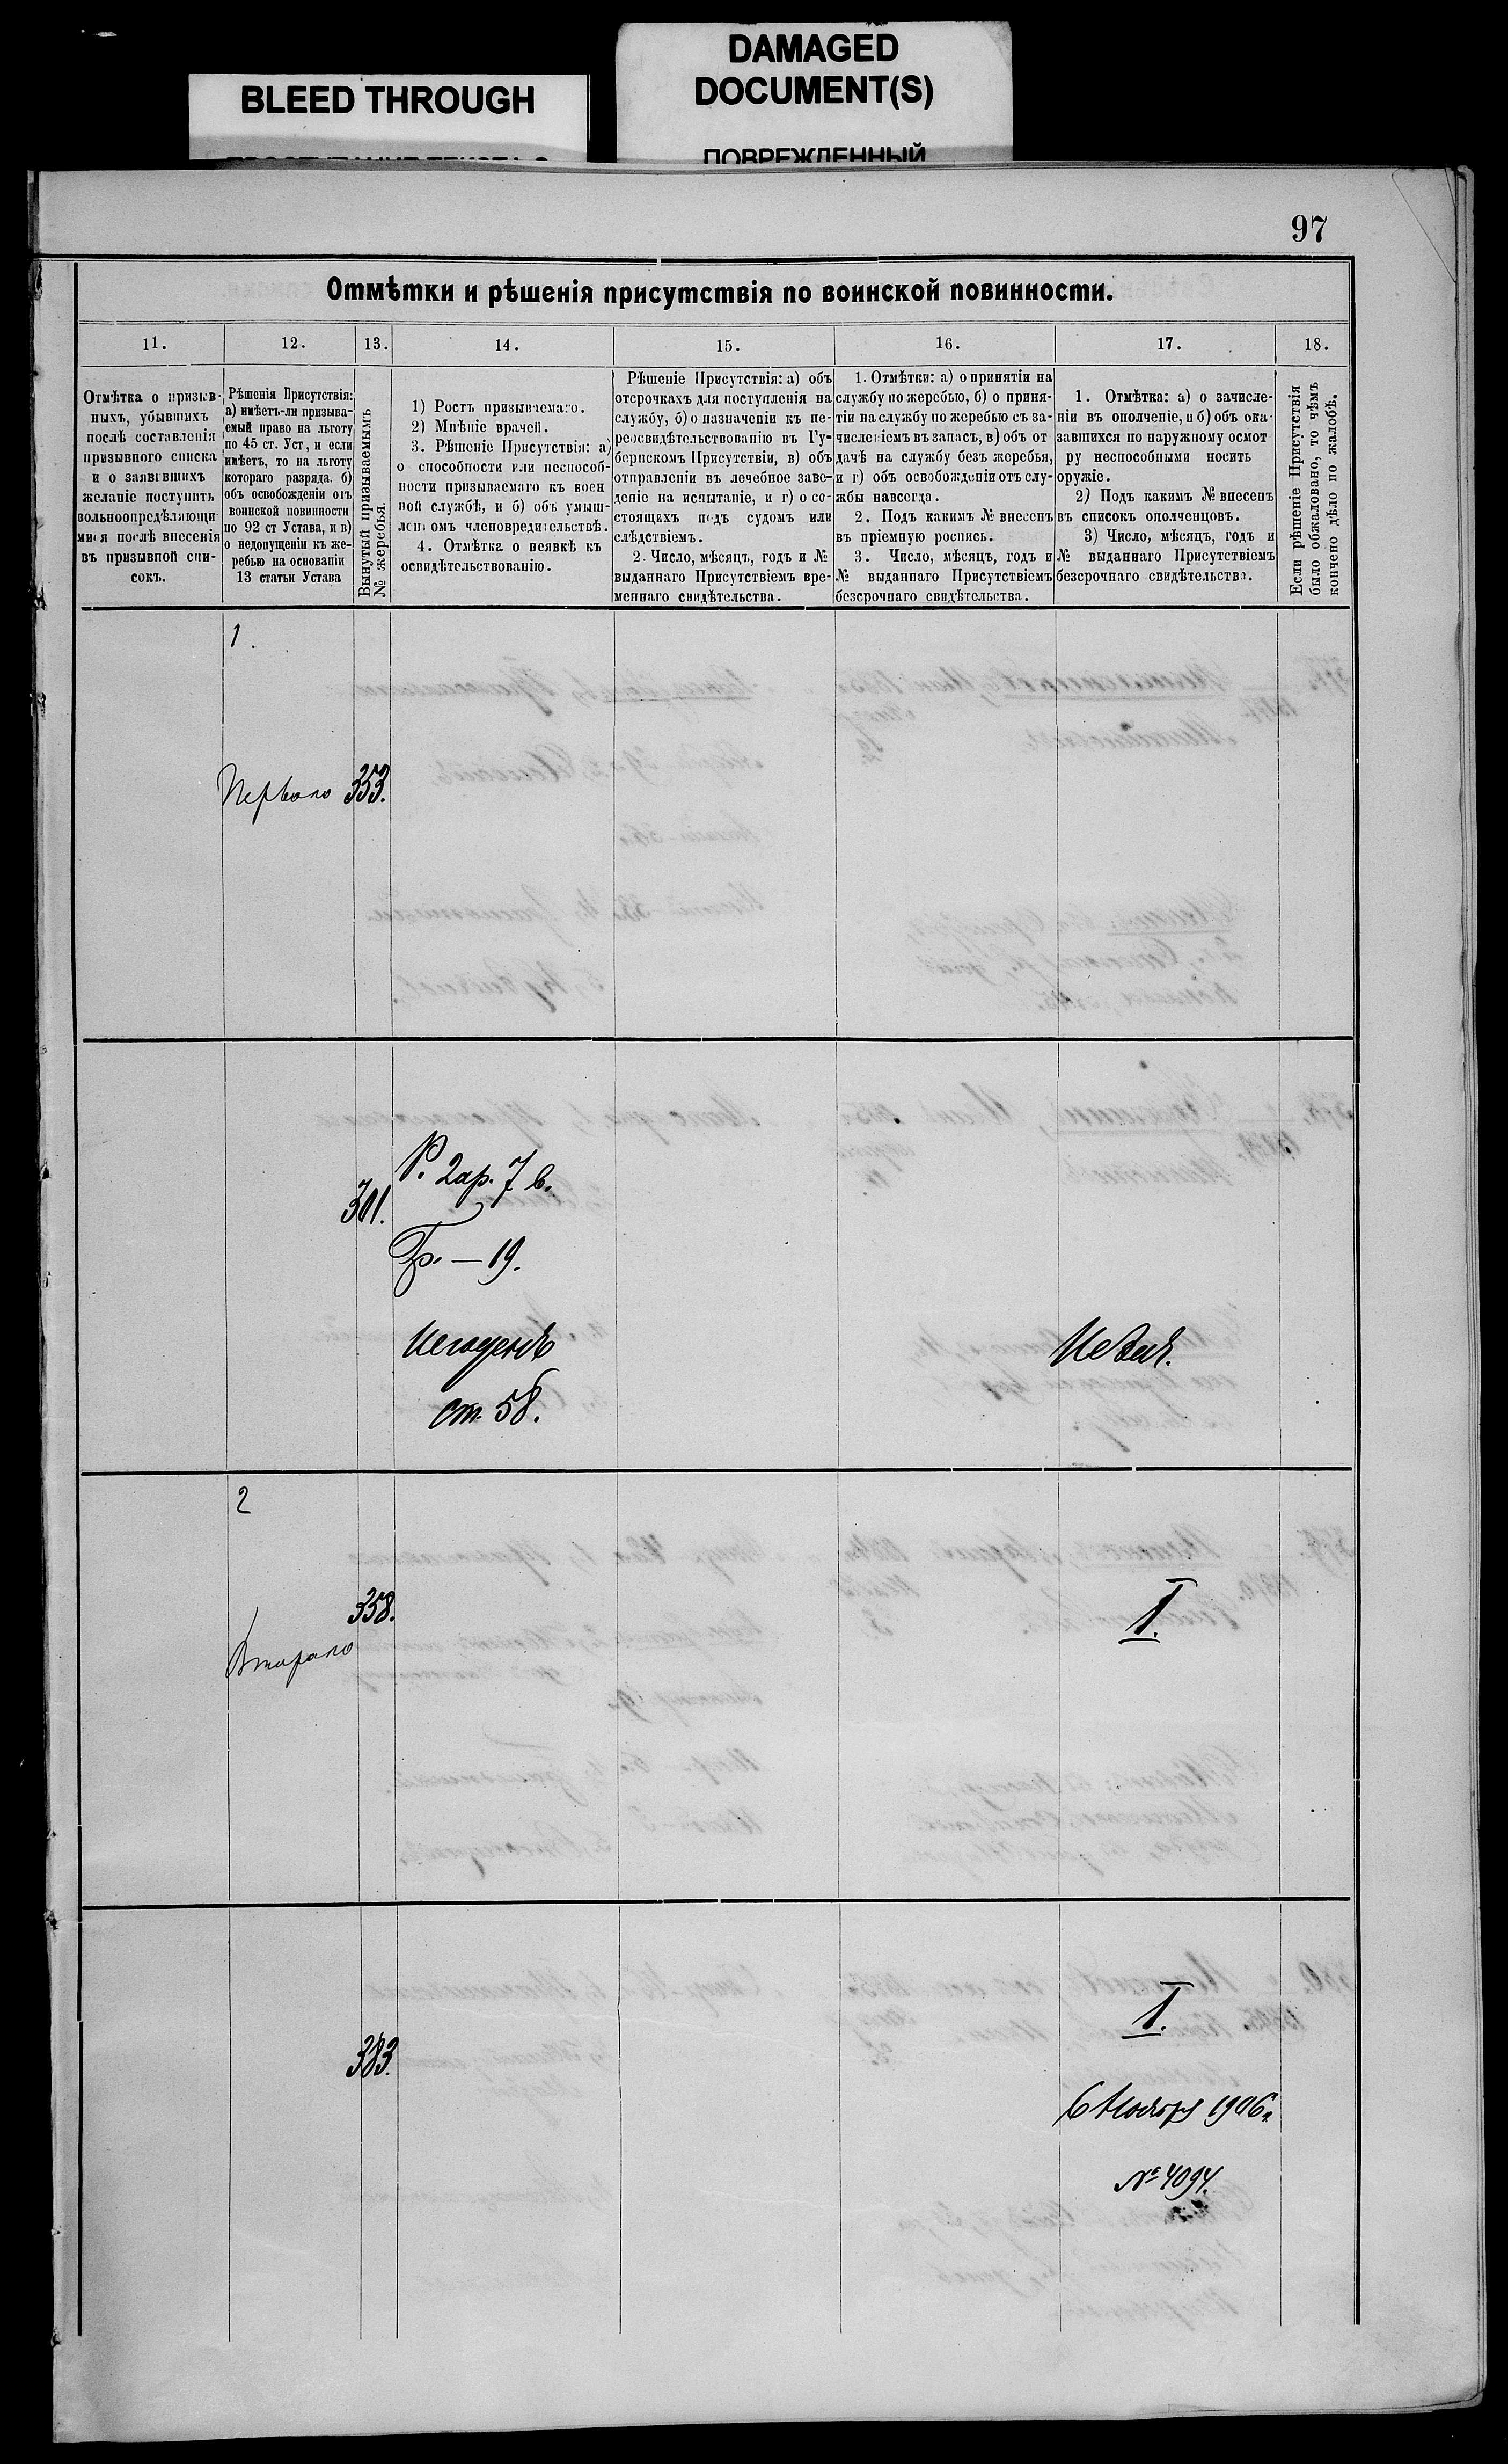 BLEED THROUGH
DAMAGED
DOCUMENT(S)
ПОВРЕЖДЕННЫЙ
97
Отмѣтки и рѣшенія присутствія по воинской повинности.
11.
12.
13.
14.
15.
16.
17.
18.
Отмѣтка о призыв-
ныхъ, убывшихъ
послѣ составленія
призывного списка
и о заявившихъ
желаніе поступить
вольноопредѣляющи
мися послѣ внесенія
въ призывной спи-
сокъ.
Рѣшенія Присутствія:
а) имѣетъ-ли призыва-
емый право на льготу
по 45 ст. Уст, и если
имѣетъ, то на льготу
котораго разряда. б)
объ освобожденіи отъ
воинской повинности
по 92 ст Устава, и в)
о недопущеніи къ же-
ребью на основаніи
13 статьи Устава
Вынутый призываемымъ
№ жеребья.
1) Ростъ призываемаго.
2) Мнѣніе врачей.
3. Рѣшеніе Присутствія: а)
о способности или неспособ-
ности призываемаго къ воен
ной службѣ, и б) объ умыш-
ленномъ членовредительствѣ.
4. Отмѣтка о неявкѣ къ
освидѣтельствованію.
Рѣшеніе Присутствія: а) объ
отсрочкахъ для поступленія на
службу, б) о назначеніи къ пе-
реосвидѣтельствованію въ Гу-
бернскомъ Присутствіи, в) объ
отправленіи въ лечебное заве-
деніе на испытаніе, и г) о со-
стоящихъ подъ судомъ или
слѣдствіемъ.
2. Число, мѣсяцъ, годъ и №
выданнаго Присутствіемъ вре-
меннаго свидѣтельства.
1. Отмѣтки: а) о принятіи на
службу по жеребью, б) о приня-
тіи на службу по жеребью съ за-
численіемъ въ запасъ, в) объ от
дачѣ на службу безъ жеребья,
и г) объ освобожденіи отъ слу-
жбы навсегда.
2. Подъ какимъ № внесенъ
въ пріемную роспись.
3. Число, мѣсяцъ, годъ и
№ выданнаго Присутствіемъ
безсрочнаго свидѣтельства.
1. Отмѣтка: а) о зачисле-
ніи въ ополченіе, и б) объ ока-
завшихся по наружному осмот
ру неспособными носить
оружіе.
2) Подъ какимъ № внесенъ
въ списокъ ополченцовъ.
3) Число, мѣсяцъ, годъ и
№ выданнаго Присутствіемъ
безсрочнаго свидѣтельства.
Если рѣшеніе Присутствія
было обжаловано, то чѣмъ
кончено дѣло по жалобѣ.
1.
Перваго 353.
Р. 2ар. 7 в.
301.
Гр. — 19.
Негоденъ
ст. 58.
2
358.
Втораго
I.
I.
383.
6 Ноября 1906 г.
№ 4094.